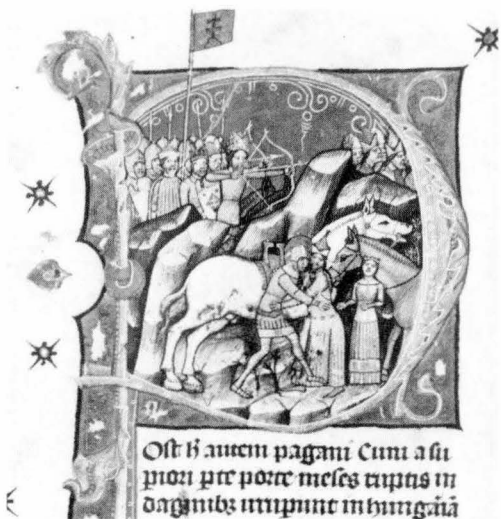 Post h̄ autem pagani Cuni a su
piori pte porte meses ruptis in
daginibꝫ irrupunt in hungāiā